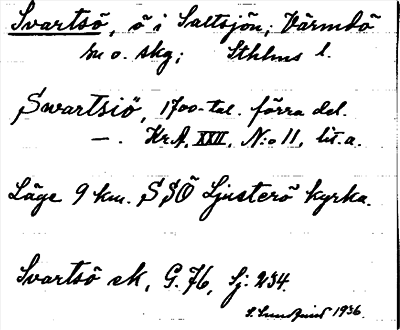 Svartsö, ö i Saltsjön, Värmdö
sn o. skg; Sthlms l.
Swartsiö, 1700-tal. förra del.
—. Kr.A. XXII. N:o 11, lit. a.
Läge 9 km. SSÖ Ljusterö kyrka.
Svartsö ek, G. 76, Sj: 234.
1936.